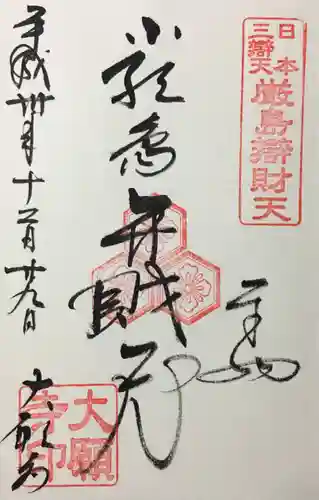 日本
三辯天
厳島辯財天
奉
厳島
弁財天
平成卅年十一月廿九日
大願寺
大願
寺印